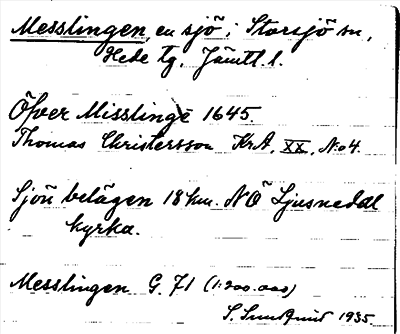 Messlingen, en sjö i Storsjö sn,
Hede tg. Jämtl. l.
Öfver Misslinge 1645.
Thomas Christersson KrA, XX, No 4.
Sjön belägen 18 km. NÖ Ljusnedal
kyrka.
Messlingen G. 71 (1:200.000)
S. 1935.